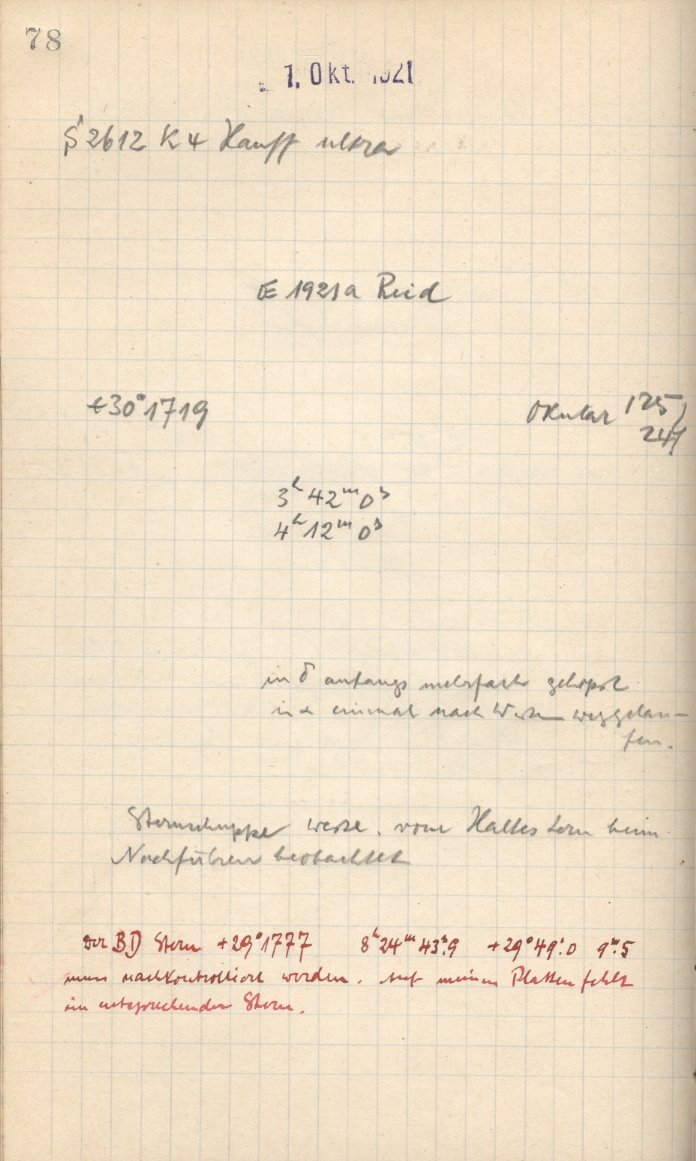 78
1. Okt. 1921
S 2612 K 4 Hauff ultra
1921a Reid
+30° 1719 Okular 125/
241
3h 42m 0s
4h 12m 0s
in δ anfangs mehrfach gehopst
in α einmal nach Westen weggelau-
fen.
Sternschnuppe vom Haltestern beim
Nachführen beobachtet
Der BD Stern +29°1777 8h 24m 43s.9 +29°49'.0 9m.5
muss nachkontrolliert werden. Auf meinen Platten fehlt
ein entsprechender Stern.